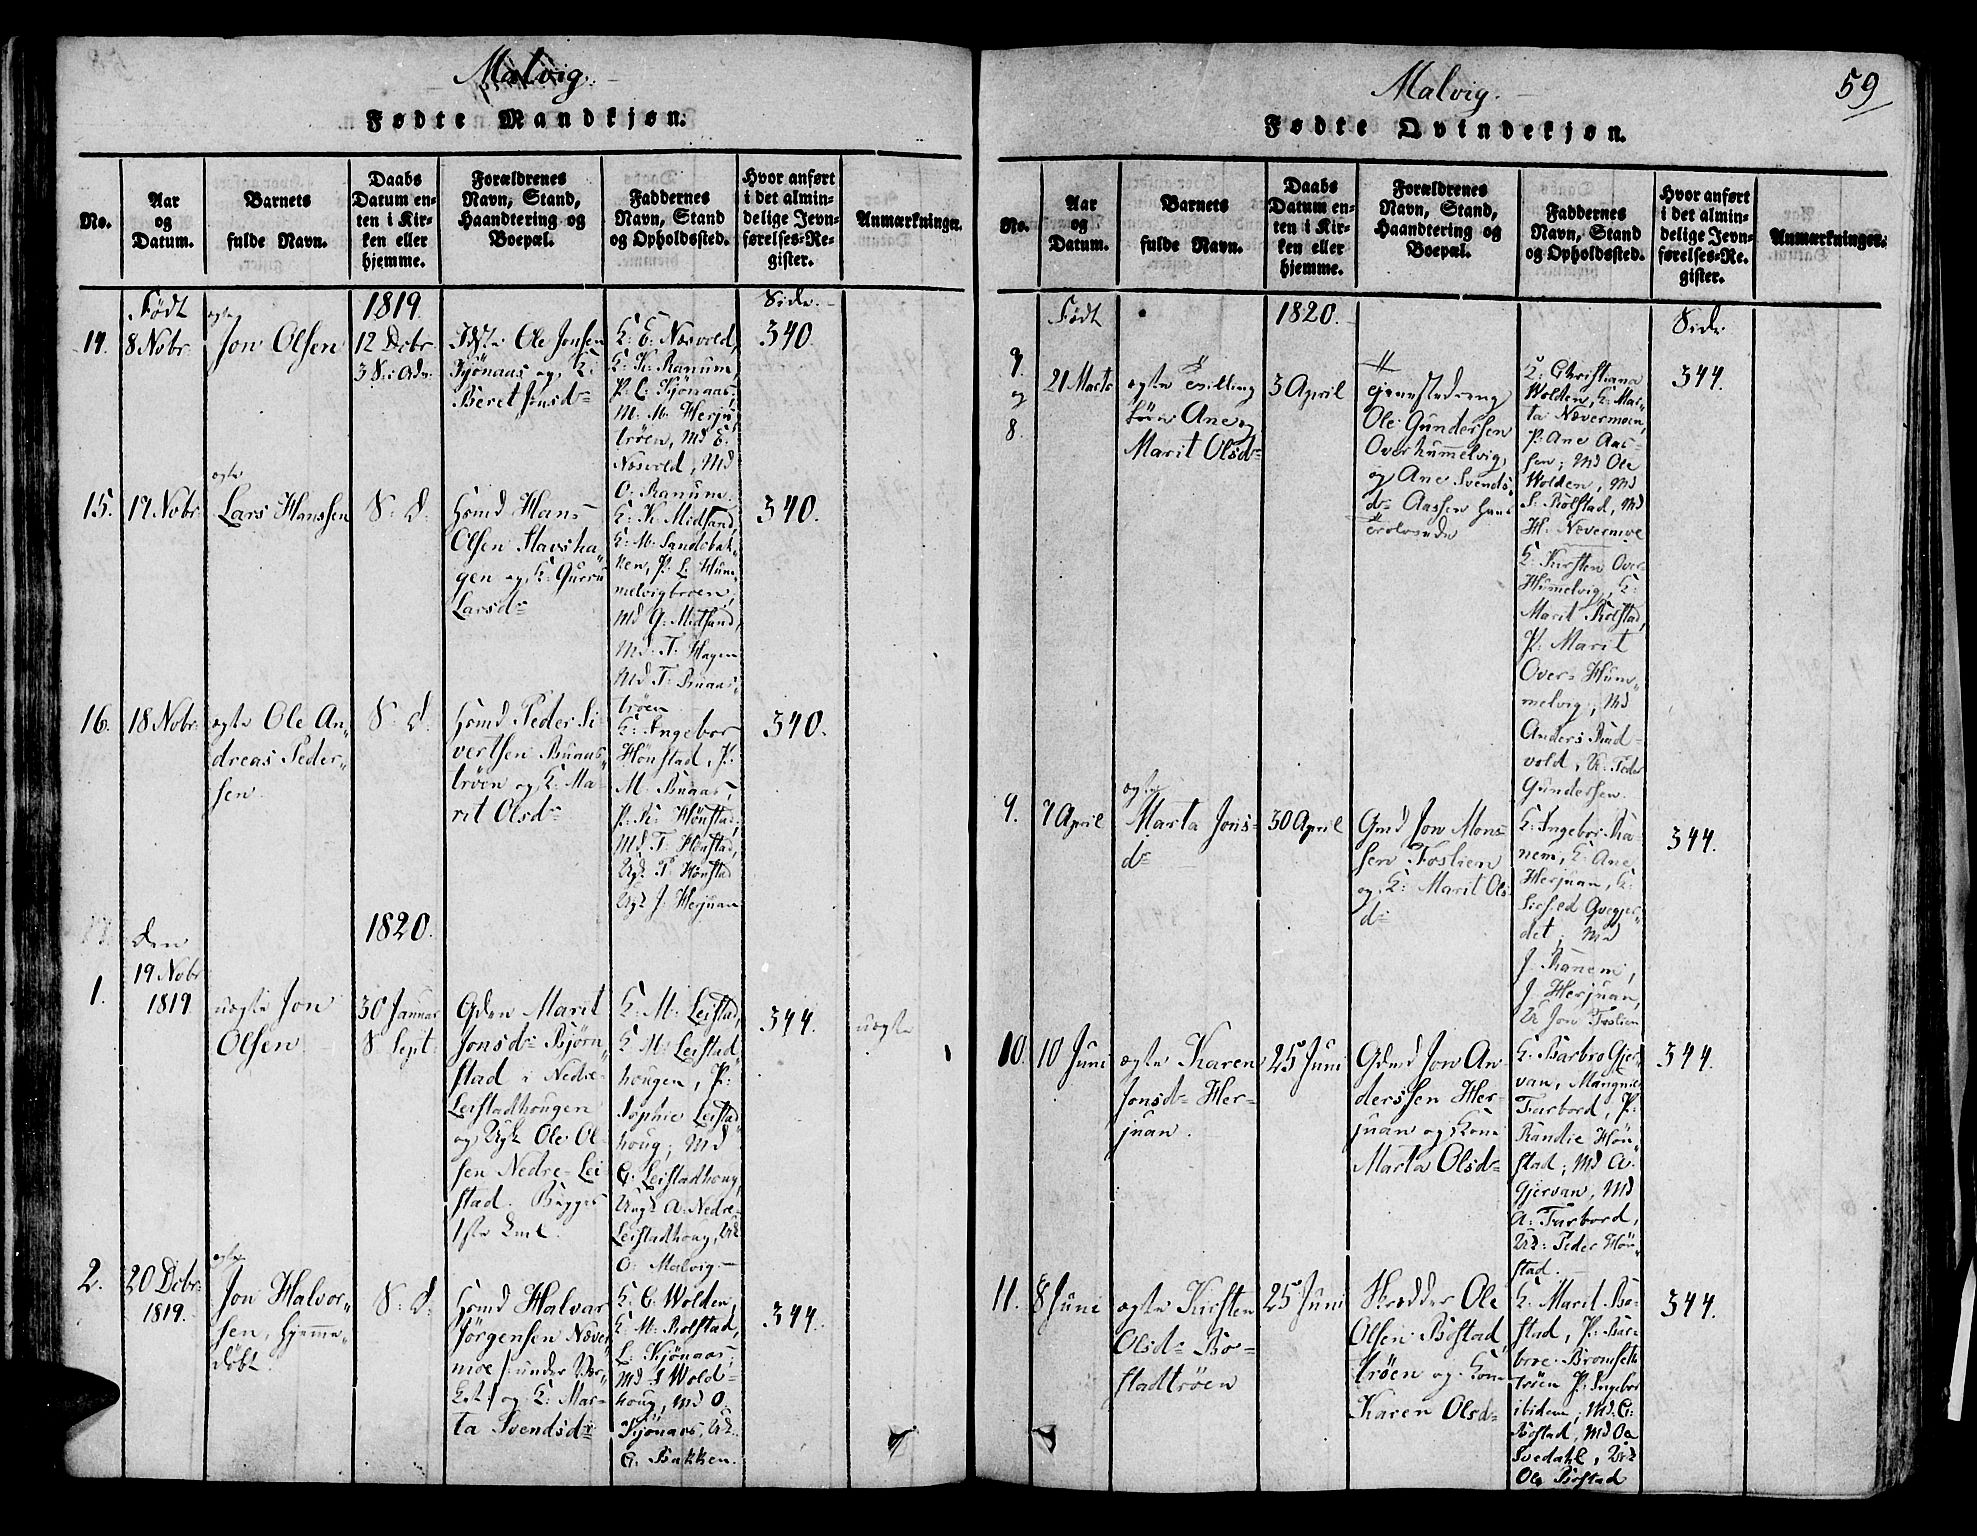 Malvig.
Fødte Mandkjøn.
No.
Aar
og
Datum.
Barnets
fulde Navn.
Daabs
Datum en-
ten i Kir-
ken eller
hjemme.
Forældrenes
Navn, Stand,
Haandtering og
Boepæl.
Faddernes
Navn, Stand
og Opholdssted.
Hvor anført
i det almin-
delige Jevn-
førelses-Re-
gister.
Anmærkninger.
Født
1819.
Side.
14.
8 Nobr
ægte
Jon Olsen
12 Decbr
3 S: i Adv:
Ole Jonsen
Kjönaas og K:
Beret Jonsd=
K: E: Næsvold,
K: K: Ranum,
P: L: Kjönaas,
M: M: Herju
tröen, Md E.
Næsvold, Md
O: Ranum.
340.
15.
17 Nobr
ægte
Lars Hanssen
S: D:
Hsmd Hans
Olsen Stavsha„
gen og K: Guru
Larsd=
K: K: Midsand,
K: M: Sandbak„
ken, P: L: Hum„
melvigtrøen,
Md G: Midsand,
Md: T: Hagen
Md T: Buaas„
tröen.
340.
16.
18 Nobr:
ægte Ole An„
dreas Peder„
sen.
S: D:
Hsmd Peder Si„
vertsen Buaas„
tröen og K: Ma„
rit Olsd=
K: Ingebor
Hönstad, P:
M. Buaas,
P: K: Hönstad,
Md T. Hönstad,
Ugk P Hönstad
Ugk J. Herjuan
340.
1820.
1.
Den
19 Nobr
1819.
uægte Jon
Olsen
30 Januar
S. Sept:
Gden Marit
Jonsd= Björn„
stad i Nedre-
Leistadhougen
og Ugk Ole Ol-
sen Nedre-Lei
stad. Begges
1ste Leiel.
K: M: Leistad,
K: M: Leistad„
hougen, P:
Sophie Leistad
houg, Md
G: Leistadhoug,
Ungk A: Nedre-
Leistadhoug, Uk
O: Malvig.
344.
uægte
2.
20 Dcbr:
1819.
ægte
Jon Halvor„
sen, hjemme„
döbt
S: D:
Hsmd Halvar
Jörgensen Næver„
moe under
og K: Mar-
ta Svendsd=
K: G. Wolden,
K: M: Rolstad,
L: Kjönaas,
Md J Wold-
houg, Md O.
Kjönaas, Uk
G. Bakken.
344.
59
Malvig.
Fødte Qvindekjøn.
No.
Aar
og
Datum.
Barnets
fulde Navn.
Daabs
Datum en-
ten i Kir-
ken eller
hjemme.
Forældrenes
Navn, Stand,
Haandtering og
Boepæl.
Faddernes
Navn, Stand
og Opholdssted.
Hvor anført
i det almin-
delige Jevn-
førelses-Re-
gister.
Anmærkninger.
Født
1820.
Side
7
og
8.
21 Marts
ægte Tvilling
börn Ane og
Marit Olsd=
3 April
Ole Gundersen
Overhummelvig,
og Ane Svends„
d= Aassen
K: Christiana
Wolden, K: Mar„
ta Nævermoen,
P: Ane Aas-
sen; Md Ole
Wolden, Md
S: Rolstad, Md
H: Nævermoe
K: Kirsten Over
Hummelvig, K:
Marit Rolstad,
P: Marit
Over-Hum„
melvig, Md
Anders Rud-
vold, U: Peder
Gundersen.
344.
9.
7 April
ægte
Marta Jons-
d=
30 April
Gmd Jon Mons-
sen Foslien
og K: Marit Ols
d=
K: Ingebor Ra-
nem, K: Ane
Herjuan, K:
Sissed Qvegjer„
det; Md
J. Ranem,
J. Herjuan,
U Jon Foslien
344.
10.
10 Juni
ægte Karen
Jonsd= Her-
juan.
25 Juni
Gdmd Jon An-
derssen Her-
juan og Kone
Marta Olsd=
K: Barbro Gjer-
van, Mangnie
Furbord, P:
Randie Hön„
stad; Md A.
Gjervan, Md
A: Furbord,
Uk: Peder Hön„
stad.
344.
11.
8 Juni
ægte Kirsten
Olsd= Bo-
stadtröen
25 Juni
Skredder Ole
Olsen Bostad
tröen og Kone
Karen Olsd=
K: Marit Bo-
stad, P: Bar-
broe Bromseth
tröen P: Ingebor
ibidem; Md. G:
Bostad, Md Ole
Svedahl, Uk
Ole Bostad
344.